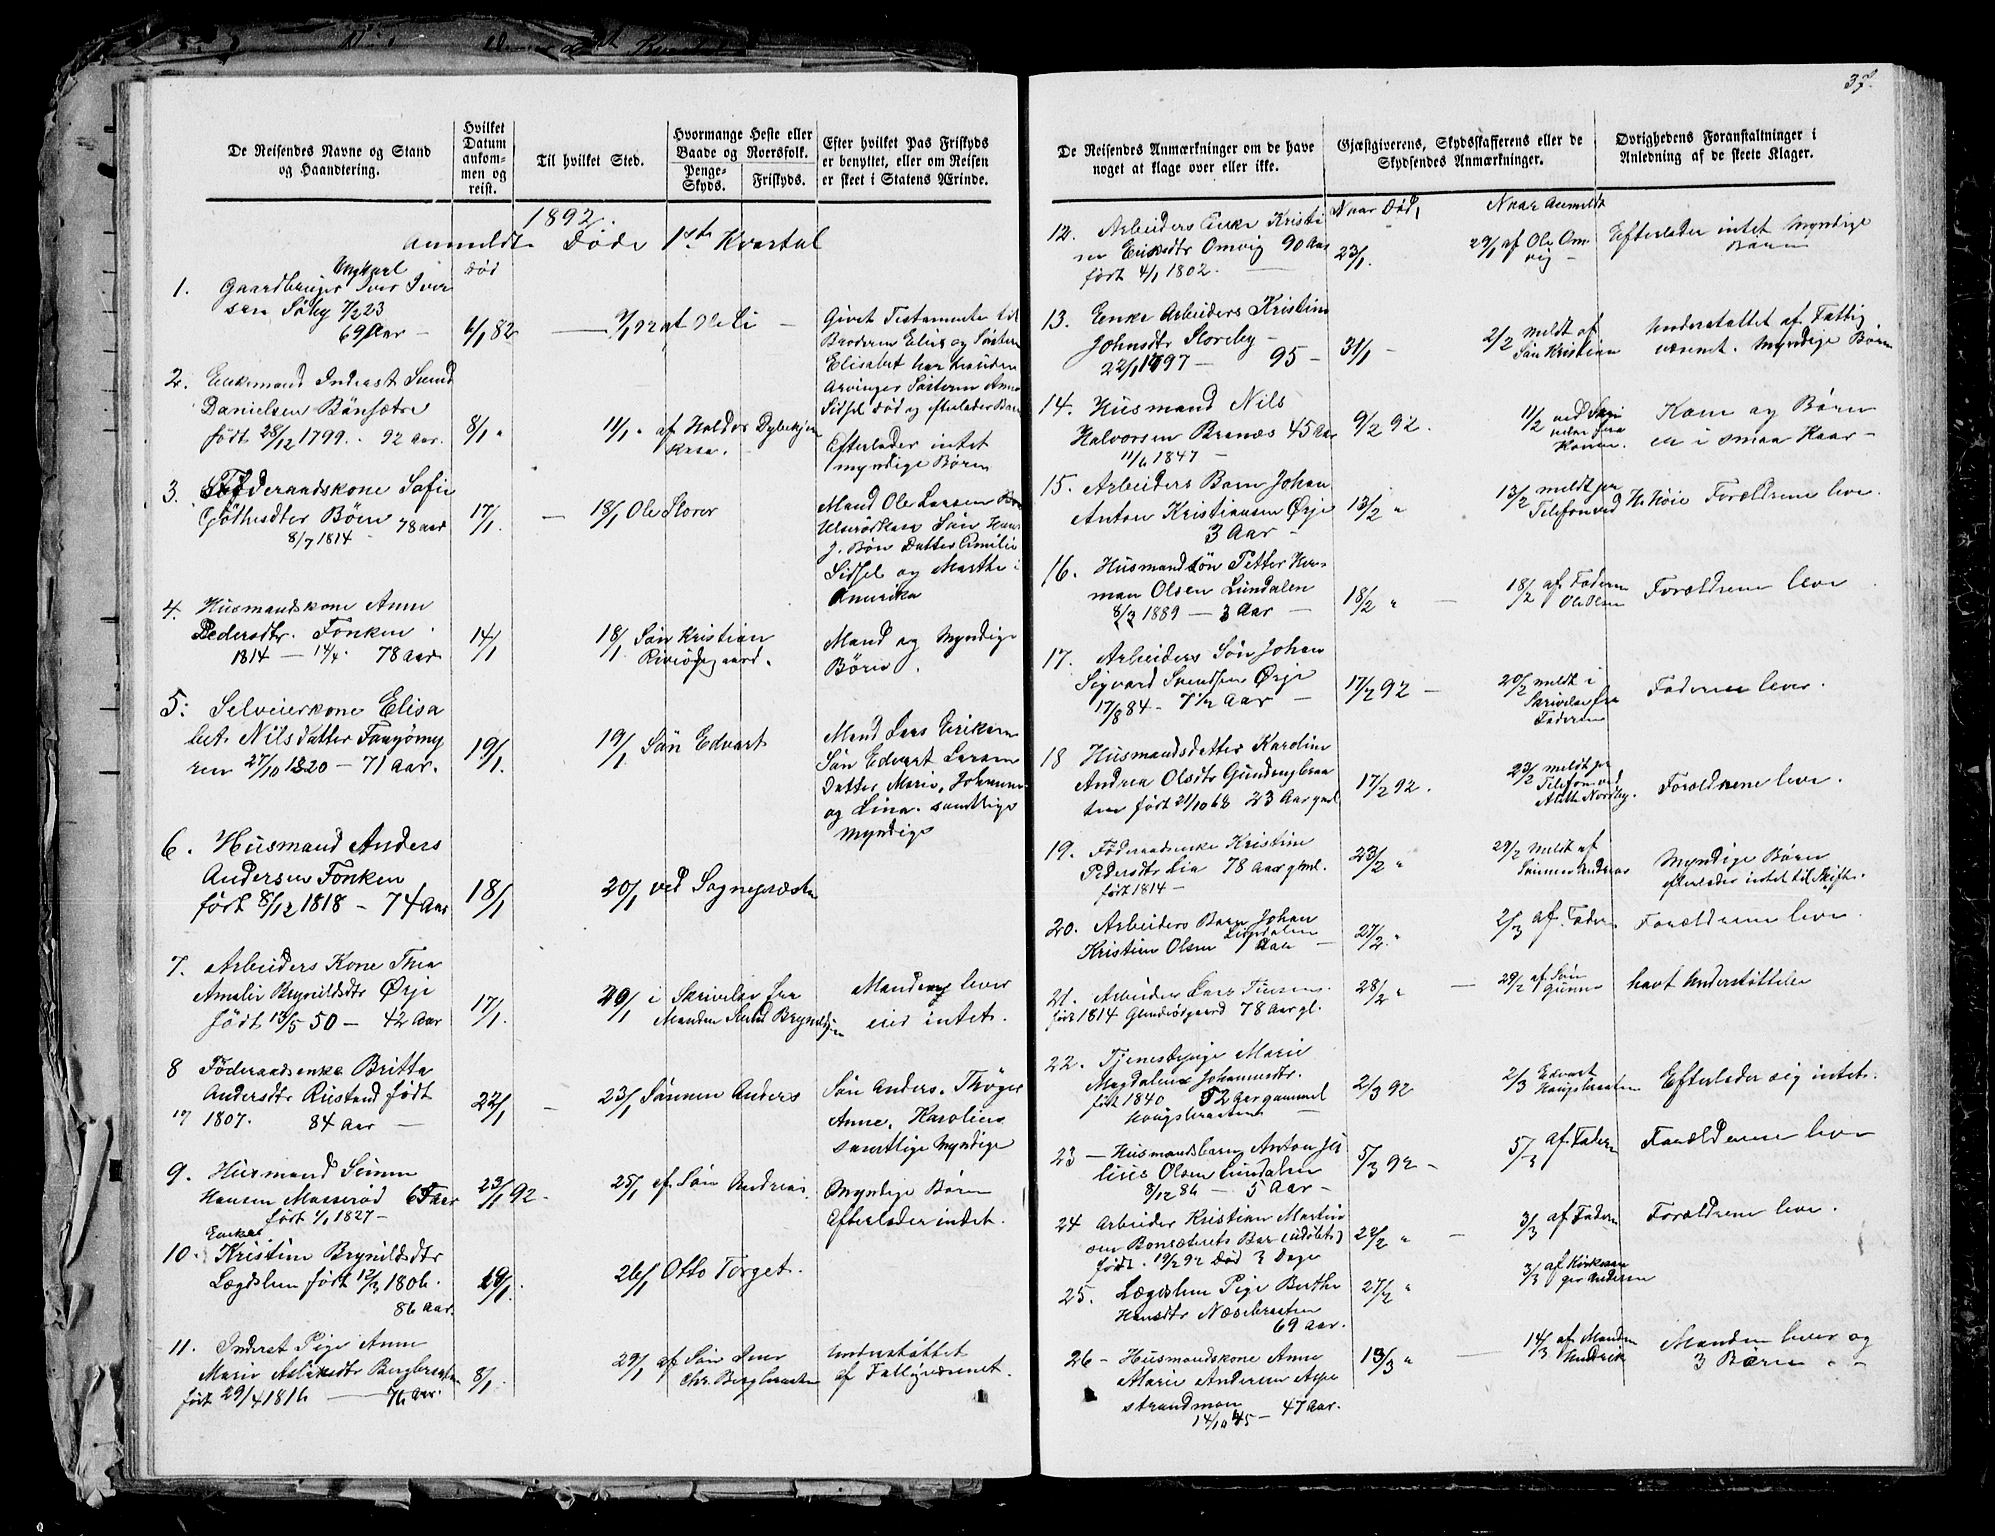 37.
De Reisendes Navne og Stand
og Haandtering.
Hvilket
Datum
ankom-
men og
reist.
Til hvilket Sted.
Hvormange Heste eller
Baade og Roersfolk.
Penge-
Skyds.
Friskyds.
Efter hvilket Pas Friskyds
er benyttet, eller om Reisen
er skeet i Statens Ærinde.
1892.
Anmeldte Døde 1ste Kvartal
død
Ungkarl
1. Gaardbruger Iver Iver
sen Søby 7/2 23
69 Aar —
6/1 82
7/1 92 af Ole Li —
Givet Testamente til
Broderen Elias og Søsteren
Elisabet har desuden
Arvinger Søsteren Anne
Sidsel død og efterlader Barn
2. Enkemand Inderst Svend
Danielsen Bönsætre
født 28/12 1799. 92 Aar.
8/1 "
11/1 . af Haldor Dybekjen
Kasa.
Efterlader intet
myndige Børen
3. Föderaadskone Sofie
Gjöthesdter Böen 78 aar
8/7 1814 —
17/1.
— 18/1 Ole Slorer
Mand Ole Larsen
Ulsrødkasa Søn Hans
J. Böen Datter Emilie
Sidsel og Marthe i
Amerika
4. Husmandskone Anne
Pedersdtr. Fonken.
1814 — 14/4. 78 Aar
14/1
18/1 Søn Kristian
Riviødegaard.
Mand og Myndige
Børen.
5: Selveierkone Elisa
bet Nils Datter Tangömy
ren 27/10 1820 — 71 Aar.
19/1.
19/1 Søn Edvart
Mand Lars Eriksen
Søn Edvart Larsen
Datter Marie, Johanne
og Lina. samtlige
Myndige
6. Husmand Anders
Andersen Fonken
født 8/12 1818 — 74 Aar
18/1
20/1 ved Sognepræsten
7. Arbeiders Kone Thea
Amalie Brynildsdtr Ørje
født 13/5 50 — 42 Aar
17/1.
29/1 i Skrivelse fra
Manden Brynildsen
Manden lever
eied intet.
8 Föderaadsenke Britta
Andersdtr Rustand født
17 1807. 84 Aar —
22/1
— 23/1 Sønnen Anders
Søn Anders. Thöger
Anne, Karoline
samtlige Myndige
9. Husmand Simen
Hansen Masserød 65 aar
født 1/1 1827 —
23/1 92 —
25/1 af. Søn Andreas.
Myndige Børen
Efterlader intet.
Enke
10. Kristine Brynildsdtr
Lægdslem født 12/3 1806.
86 Aar.
19/1.
26/1 Otto Torget.
11. Inderst Pige Anne
Marie Aslaksdtr Bergbraaten
født 29/4 1816 — 76 Aar.
8/1.
29/1 af Søn Iver
Chr. Bergbraaten
Understøttet
af Fattigvæsenet.
De Reisendes Anmærkninger om de have
noget at klage over eller ikke.
Gjæstgiverens, Skydsskafferens eller de
Skydsendes Anmærkninger.
Øvrighedens Foranstaltninger i
Anledning af de skeete Klager.
Naar Død,
Naar Anmeldt
12. Arbeiders Enke Kristi
ne Eriksdtr Omvig 90 Aar
født 4/1 1802. —
23/1.
29/1 af Ole Om
vig —
Efterlader intet Myndige
Børen
13. Enke Arbeiders Kristine
Johnsdtr Storeby —
22/1 1797 — 95 —
31/1 —
2/2 meldt af
Søn Kristian
Understøttet af Fattig
væsenet. Myndige Børn
14. Husmand Nils
Halvorsen Branæs 45 Aar
11/6 1847 —
9/2 92.
11/2 ved Skri
velse fra
Konen.
Kone og Børen
er i smaa Kaar —
15. Arbeiders Barn Johan
Anton Kristiansen Ørje
3 Aar —
13/2 "
13/2 meldt pr
Telefon ved H. Høie
Forældrene lever.
16. Husmandsön Petter Her-
man Olsen Lundalen
8/3 1889 — 3 Aar —
18/2 " —
18/2 af Faderen
Ole Olsen
Forældrene lever
17. Arbeiders Søn Johan
Sigvard Svendsen Ørje
17/8 84 — 7 1/2 Aar —
17/2 92 —
20/2 meldt i
Skrivelse fra
Faderen
Faderen lever.
18 Husmandsdatter Karoline
Andrea Olsdtr Gundengbraa
ten født 21/10 68 23 Aar gml
17/2 92.
23/2 meldt pr
Telefon ved
Nordby.
Forældrene lever.
19. Föderaadsenke Kristine
Pedersdtr Lia 78 Aar gml.
født 1814 —
23/2 "
29/2 Meldt af
Sønnen Andreas
Myndige Børen
efterlader intet til Skifte.
20. Arbeiders Barn Johan
Kristian Olsen Lundalen 1 Aar —
27/2. "
2/3 af. Fader
Forældrene lever.
21. Arbeider Lars
født 1814 78 Aar gl.
28/2 " —
29/2 af Søn
Gunner
havt Understøttelse
22. Tjenestepige Marie
Magdalene Johannesdtr.
født 1840 52 Aar gammel
Haugsbraaten —
2/3 92
2/3 Edvart
Haugsbraaten
Efterlader sig intet.
23 — Husmandsbarn Anton Ju
lius Olsen Lundalen
8/12 86 — 5 Aar —
5/3 92 —
5/3 af Fadern
Forældrene lever
24 Arbeider Kristian Martin
sen Bonsæterets Bar (udöbt)
født. 19/2 92 død 3 Dage
22/2 " —
3/3 af Fadern
Forældrene lever.
25. Lægdslem Pige Berthe
Hansdtr Næsebraaten
69 Aar.
27/2 "
3/3 af Kirkesan
ger Andersen
26 — Husmandskone Anne
Marie Andersen Aspe
strandmon
14/10 45 — 47 Aar.
13/3 "
14/3 af Manden
Hendrik
Manden lever og
3 Børen " —